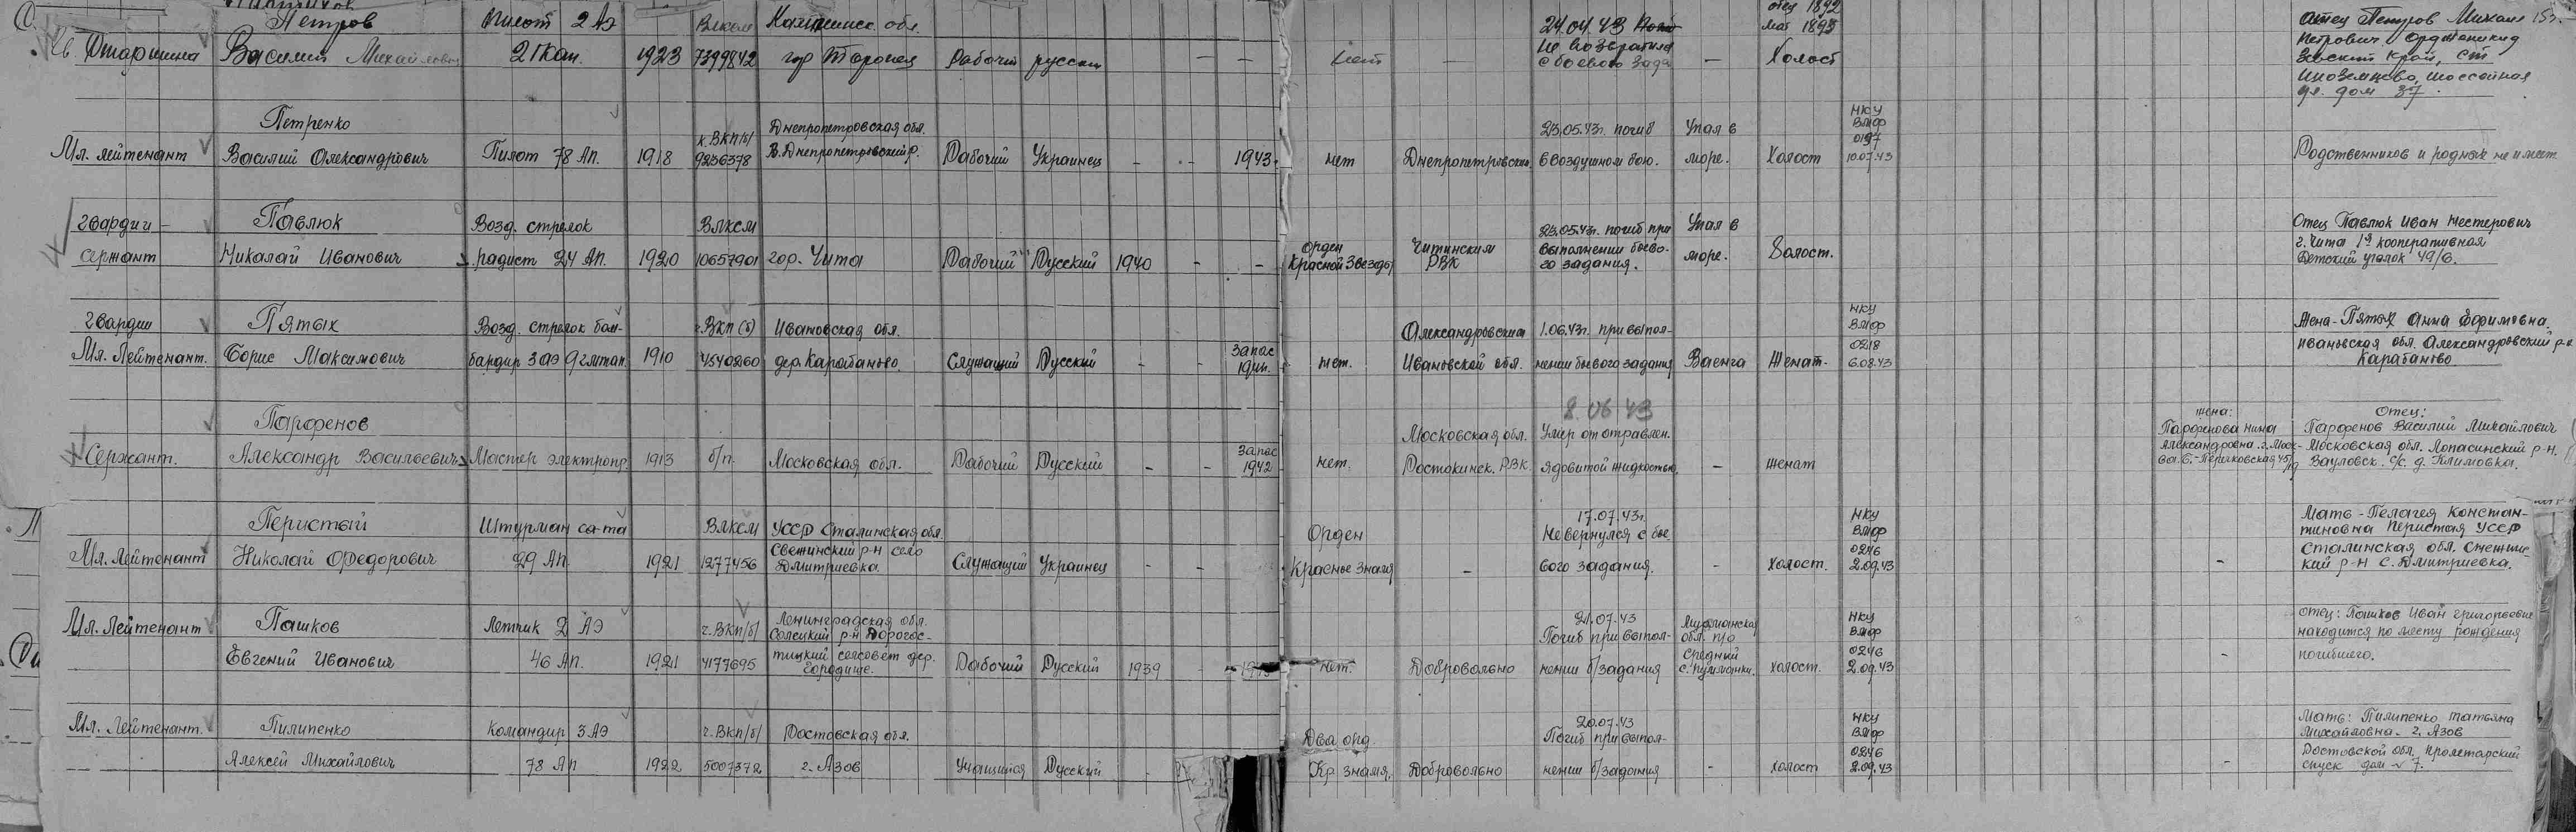 Петров Пилот 2 АЭ ВЛКСМ Калининс. обл. 24.04.43 отец 1892 мать 1895 Отец Петров Михаил
Гв. Старшина Василий Михайлович 1923 7399842 гор Торопец Рабочий русский — — нет — Не возвратился с боевого зада — Холост Петрович Орджоникид
зевский край, ст
Иноземцево, шоссейная
ул. дом 37.
Петренко к. ВКП/б/ Днепропетровская обл. 23.05.43г. погиб Упал в НКУ ВМФ 0197
Мл. лейтенант Василий Александрович Пилот 78 АП. 1918 9236378 В. Днепропетровский р. Рабочий Украинец - - 1943. нет Днепропетровским в воздушном бою. море. Холост 10.07.43 Родственников и родных не имеет
гвардии - Павлюк Возд. стрелок ВЛКСМ 23.05.43г. погиб при Упал в Отец Павлюк Иван Нестерович
сержант Николай Иванович радист 24 АП. 1920 10657901 гор. Чита Рабочий Русский 1940 - - Орден Красной Звезды Читинским РВК выполнении боево-го задания. море. Холост. г. Чита 1я кооперативная
Детский уголок 49/6.
гвардии Пятых Возд. стрелок бом- ч. ВКП(б) Ивановская обл. Александровским 1.06.43г. при выпол- НКУ ВМФ 0218 Жена - Пятых Анна Ефимовна
Мл. Лейтенант. Борис Максимович бардир 3 АЭ 9 гмтап. 1910 4540260 дер. Карабаново. Служащий Русский - - запас нет. Ивановской обл. нении боевого задания Ваенга Женат. 6.08.43 Ивановская обл. Александровский р-н
Карабаново.
8.06.43
Парфенов Московская обл. Умер от отравлен. жена: Парфенова Нина Отец: Парфенов Василий Михайлович
Сержант. Александр Васильевич Мастер электропр. 1913 б/п. Московская обл. Рабочий Русский - - запас 1942 нет. Ростокинск. РВК ядовитой жидкостью. - женат Александровна. г. Моск- Московская обл. Лопасинский р-н.
ва. Вауловск. с/с. д. Климовка.
Перистый Штурман са-та ВЛКСМ УССР Сталинская обл. Орден 17.07.43г. Не вернулся с бое НКУ ВМФ 0246 Мать - Пелагея Констан-
тиновна Перистая УССР
Мл. Лейтенант Николай Федорович 29 АП. 1921 1277456 Свежинский р-н село Дмитриевка. Служащий Украинец - - Красное знамя - вого задания. - холост. 2.09.43 - Сталинская обл. Снежнис-
кий р-н с. Дмитриевка.
Мл. Лейтенант Пашков Летчик 2 АЭ ч. ВКП/б/ Ленинградская обл. Солецкий р-н Дорогос- 21.07.43 Погиб при выпол- Мурманская обл. п/о НКУ ВМФ 0246 отец: Пашков Иван Григорьевич
находится по месту рождения
Евгений Иванович 46 АП. 1921 4177695 тицкий сельсовет дер. Городище. Рабочий Русский 1939 - нет. Добровольно нении б/задания Средний холост. 2.09.43 - погибшего.
Мл. Лейтенант. Пилипенко Командир 3 АЭ ч. ВКП/б/ Ростовская обл. Два орд. 20.07.43 Погиб при выпол- НКУ ВМФ 0246 Мать: Пилипенко Татьяна
Михайловна - г. Азов
Алексей Михайлович 78 АП 1922 5007372 г. Азов Учащийся Русский - Кр. знамя. Добровольно нении б/задания - холост 2.09.43 - Ростовской обл. Пролетарский
спуск дом 7.